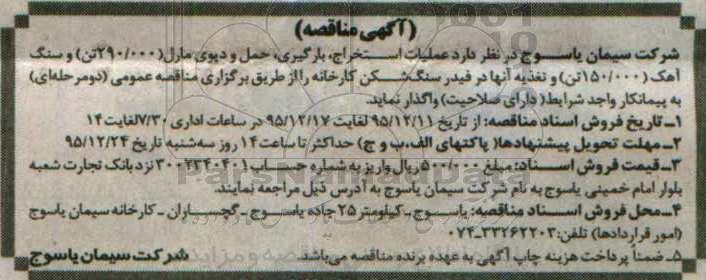 (آگهی مناقصه)
شرکت سیمان یاسوج در نظر دارد عملیات استخراج، بارگیری، حمل و دپوی مارل(۲۹۰/۰۰۰تن) و سنگ
آهک (۱۵۰/۰۰۰تن) و تغذیه آنها در فیدر سنگ‌شکن کارخانه را از طریق برگزاری مناقصه عمومی (دومرحله‌ای)
به پیمانکار واجد شرایط( دارای صلاحیت) واگذار نماید.
۱ـ تاریخ فروش اسناد مناقصه: از تاریخ ۹۵/۱۲/۱۱ لغایت ۹۵/۱۲/۱۷ در ساعات اداری ۷/۳۰لغایت ۱۴
۲ـ مهلت تحویل پیشنهادها( پاکتهای الف، ب و ج) حداکثر تا ساعت ۱۴ روز سه‌شنبه تاریخ ۹۵/۱۲/۲۴
۳ـ قیمت فروش اسناد: مبلغ ۵۰۰/۰۰۰ریال واریز به شماره حساب ۳۰۰۲۳۴۰۴۰۱ نزد بانک تجارت شعبه
بلوار امام خمینی یاسوج به نام شرکت سیمان یاسوج به آدرس ذیل مراجعه نمایند.
۴ـ محل فروش اسناد مناقصه: یاسوج ـ کیلومتر ۲۵ جاده یاسوج ـ گچساران ـ کارخانه سیمان یاسوج
(امور قراردادها) تلفن: ۳۳۲۶۲۲۰۳ـ۰۷۴
۵ـ ضمنا پرداخت هزینه چاپ آگهی به عهده برنده مناقصه می‌باشد.
شرکت سیمان یاسوج
ParsNamadData